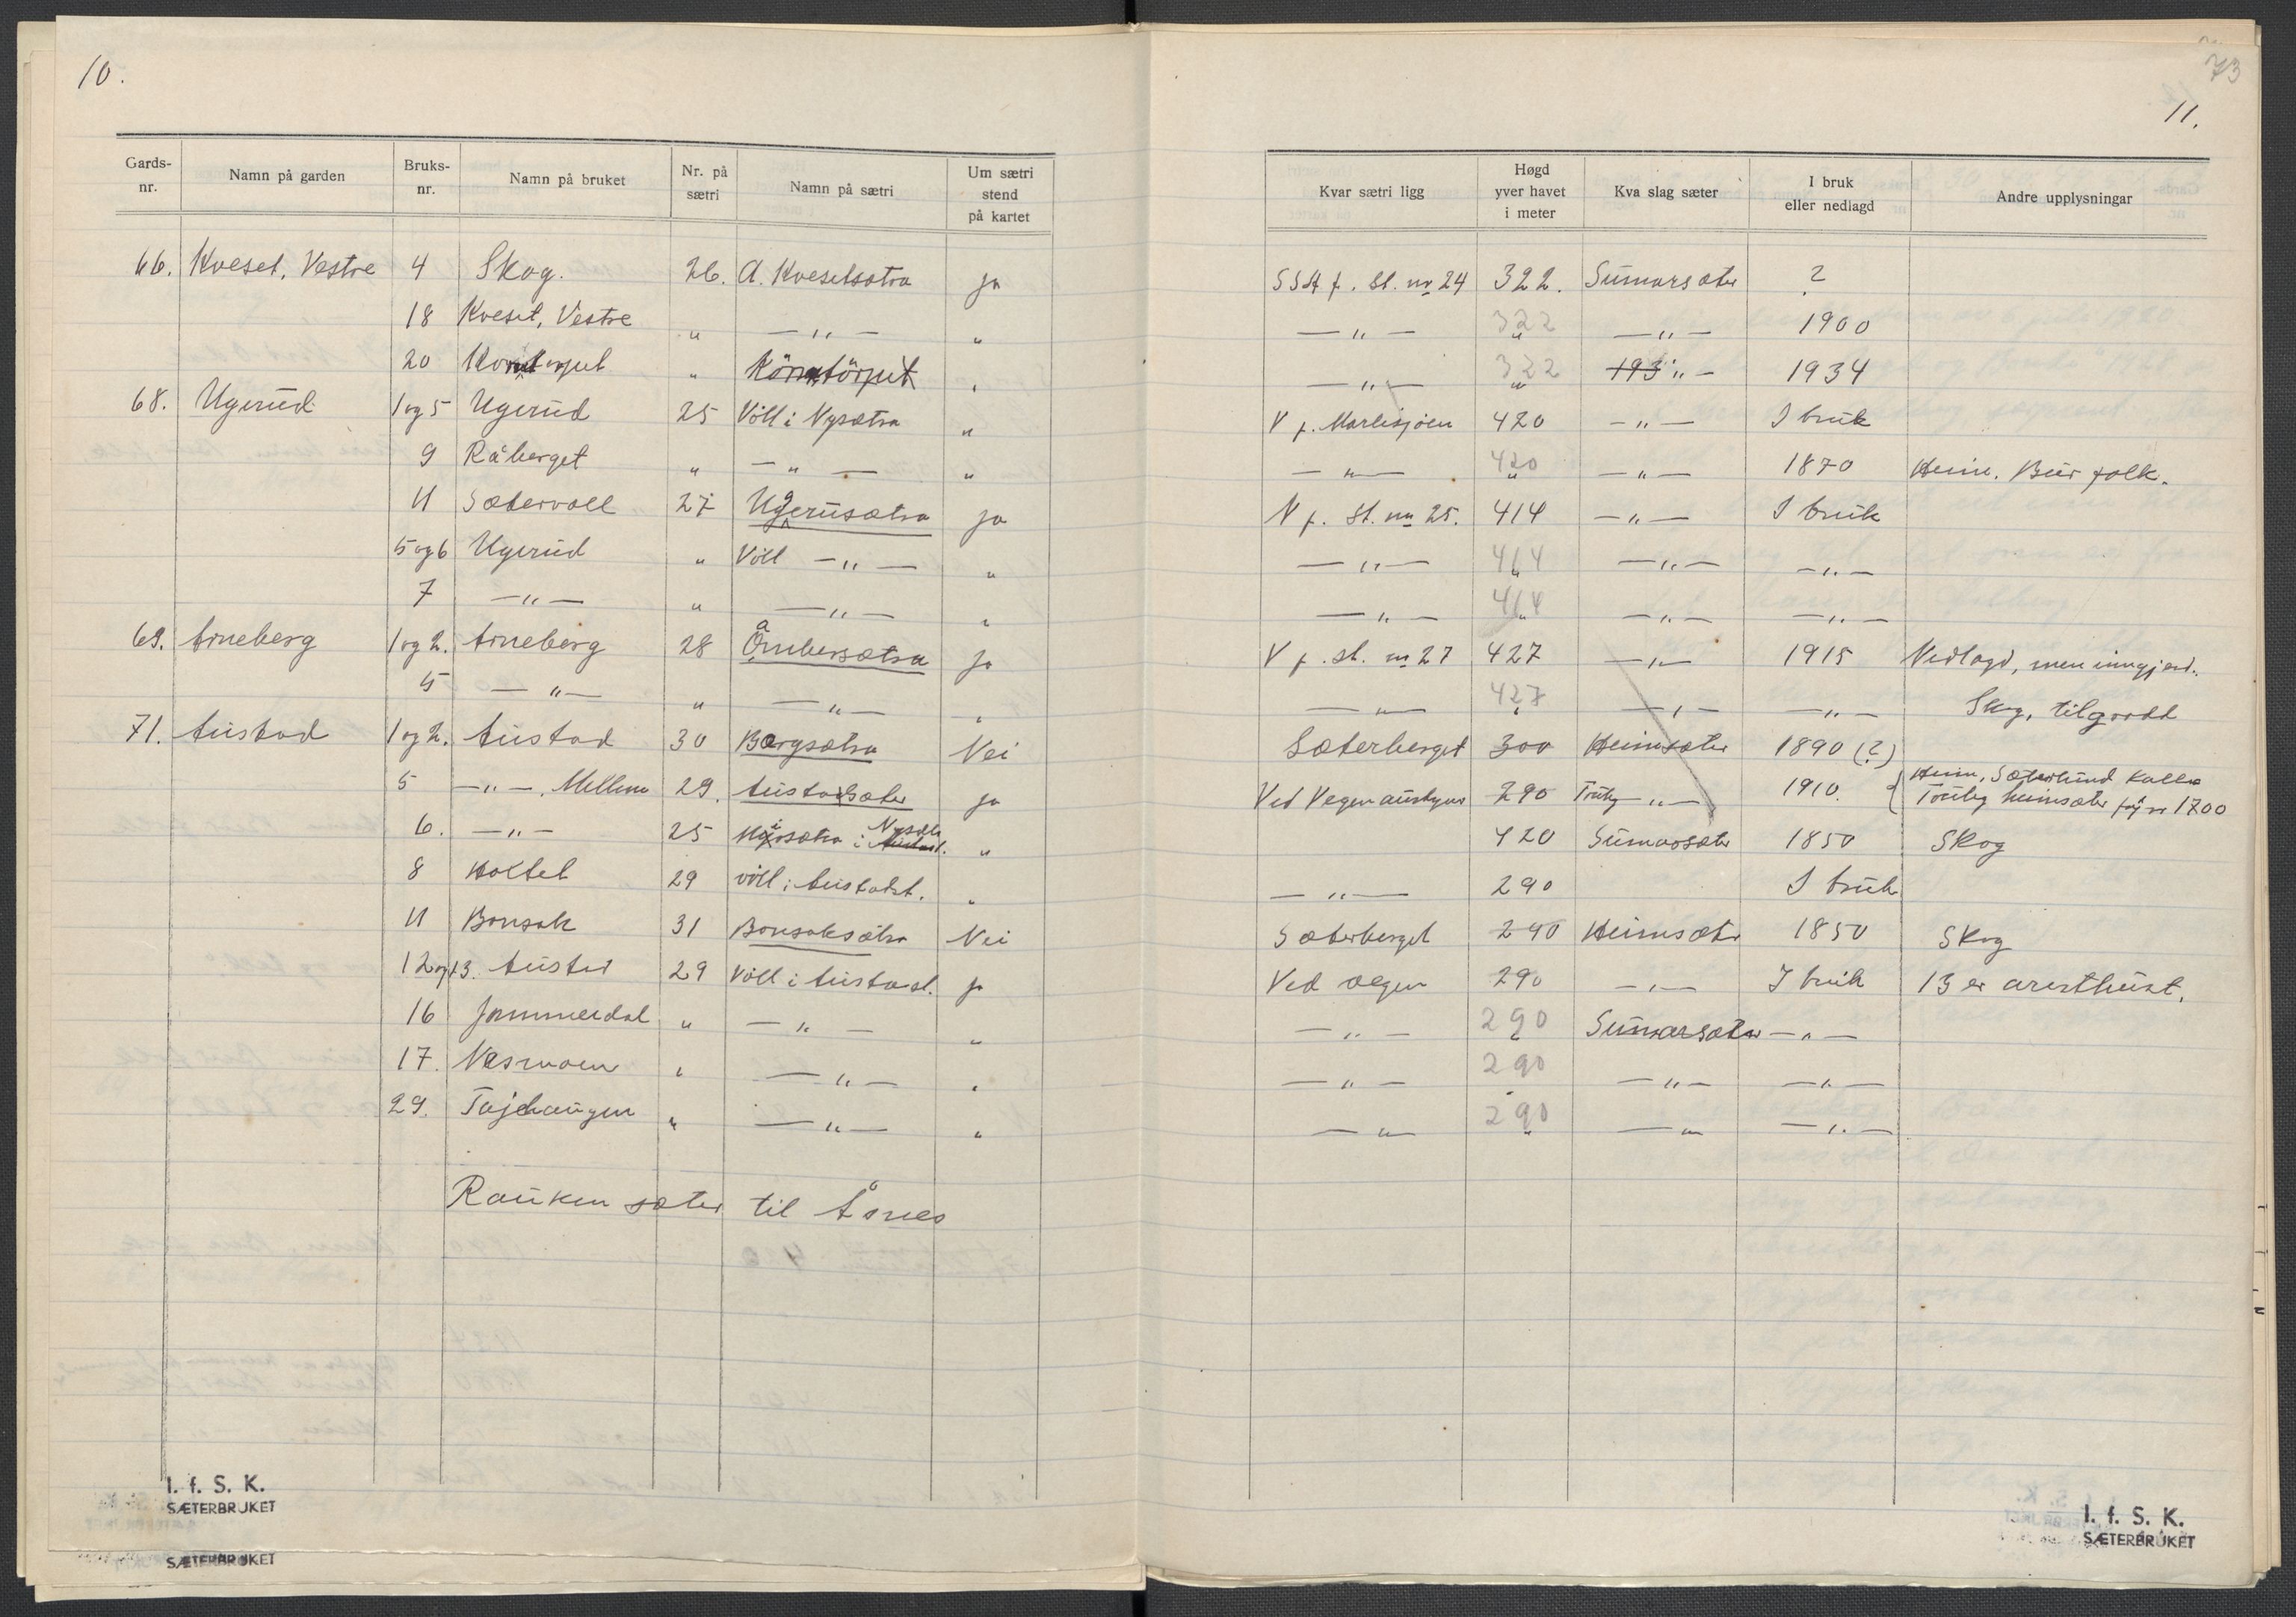 10.
Gards-nr. Namn på garden Bruks-nr. Namn på bruket Nr. på sætri Namn på sætri Um sætri stend på kartet
66. Kveset, Vestre 4 Skog. 26. A. Kvesetsætra ja
18 Kveset, Vestre " — " — "
20 "
68. Ugerud 1 og 5 Ugerud 25 Völl i Nysætra "
9 Råberget " — " — "
11 Sætervoll 27 Ugerusætra ja
5 og 6 Ugerud " Völl — " — "
7 — " — " — " — "
69. Arneberg 1 og 2. Arneberg 28 ja
5 — " — " — " — "
71. Austad 1 og 2. Austad 30 Bergsætra Nei
5 — " —, Mellem 29. Austadsæter ja
6. — " — 25 i "
8 Holtet 29 völl i Austadst. "
11 Bonsak 31 Bonsaksætra Nei
12 og 13. Austad 29 Völl i Austadst. ja
16 Jammerdal " — " — "
17. Næsmoen " — " — "
29. " — " — "
Rauken sæter til Åsnes
I. f. S. K.
SÆTERBRUKET
SÆTERBRUKET
73
11.
Kvar sætri ligg Høgd yver havet i meter Kva slag sæter I bruk eller nedlagd Andre upplysningar
SSA f. st. nr 24 322. Sumarsæter ?
— " — 322 — " — 1900
— " — 322 193 " — 1934
V f. 420 — " — I bruk
— " — 420 — " — 1870 Heim. Bur folk.
N f. St. nr 25. 414 — " — I bruk
— " — 414 — " — — " —
— " — 414 — " — — " —
V f. st. nr 27 427 — " — 1915 Nedlagd, men inngjerd.
— " — 427 — " — — " — Skog, tilgrodd
Sæterberget 300 Heimsæter 1890 (?)
Ved Vegen 290 — " — 1910. Heim, Sæterlund kalla
heimsæter før 1700
420 Sumarsæter 1850 Skog
— " — 290 I bruk
Sæterberget 290 Heimsæter 1850 Skog
Ved vegen 290 — " — I bruk 13 er
— " — 290 Sumarsæter — " —
— " — 290 — " — — " —
— " — 290 — " — — " —
I. f. S. K.
SÆTERBRUKET